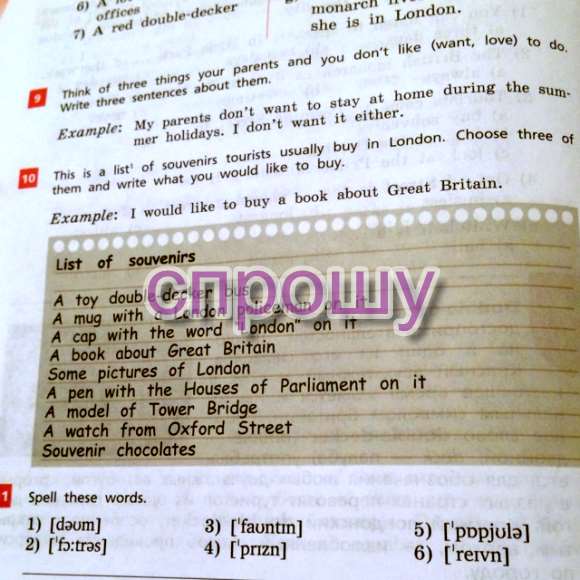 6) A
offices
7) A red double-decker
monarch
she is in London.
9 Think of three things your parents and you don't like (want, love) to do.
Write three sentences about them.
Example: My parents don't want to stay at home during the sum-
mer holidays. I don't want it either.
10 This is a list¹ of souvenirs tourists usually buy in London. Choose three of
them and write what you would like to buy.
Example: I would like to buy a book about Great Britain.
List of souvenirs
A toy double-decker bus
A mug with a London policeman on it
A cap with the word "London" on it
A book about Great Britain
Some pictures of London
A pen with the Houses of Parliament on it
A model of Tower Bridge
A watch from Oxford Street
Souvenir chocolates
спрошу
1 Spell these words.
1) [dəʊm]
2) [ˈfɔːtrəs]
3) [ˈfaʊntɪn]
4) [ˈprɪzn]
5) [ˈpɒpjʊlə]
6) [ˈreɪvn]